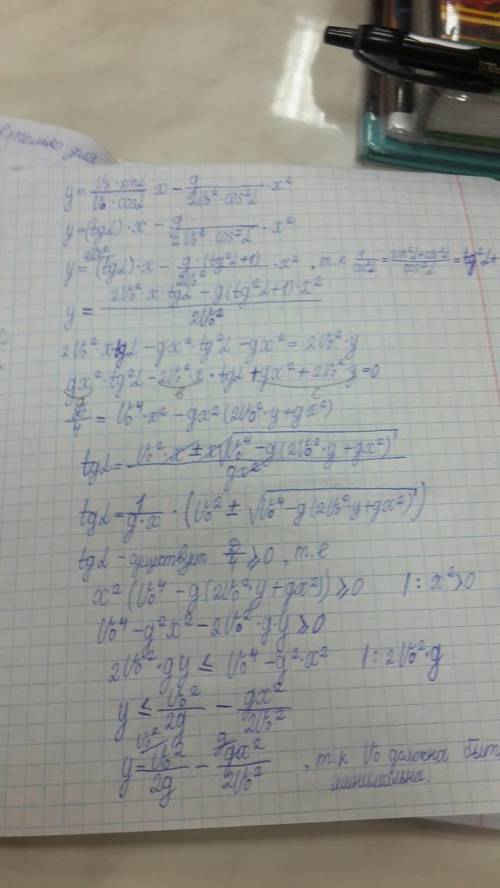 y = (V₀·sinα)/(V₀·cosα) x − g/(2V₀²·cos²α) · x²
y = (tgα)·x − g/(2V₀²·cos²α) · x²
y = (tgα)·x − g·(tg²α+1)/(2V₀²) · x², т.к 1/cos²α = (sin²α+cos²α)/cos²α = tg²α+
y = (2V₀²x·tgα − g(tg²α+1)·x²)/(2V₀²)
2V₀²·x·tgα − gx²·tg²α − gx² = 2V₀²·y
gx²·tg²α − 2V₀²·x·tgα + gx² + 2V₀²·y = 0
D/4 = V₀⁴·x² − gx²(2V₀²·y + gx²)
tgα = (V₀²·x ± x√(V₀⁴ − g(2V₀²·y + gx²)))/(gx²)
tgα = 1/(g·x) · (V₀² ± √(V₀⁴ − g(2V₀²·y + gx²)))
tgα − существует D/4 ≥ 0, т.е
x²(V₀⁴ − g(2V₀²·y + gx²)) ≥ 0 |: x² > 0
V₀⁴ − g²x² − 2V₀²·g·y ≥ 0
2V₀²·gy ≤ V₀⁴ − g²·x² |: 2V₀²·g
y ≤ V₀²/(2g) − gx²/(2V₀²)
y = V₀²/(2g) − gx²/(2V₀²), т.к V₀ должна быть
минимальна.